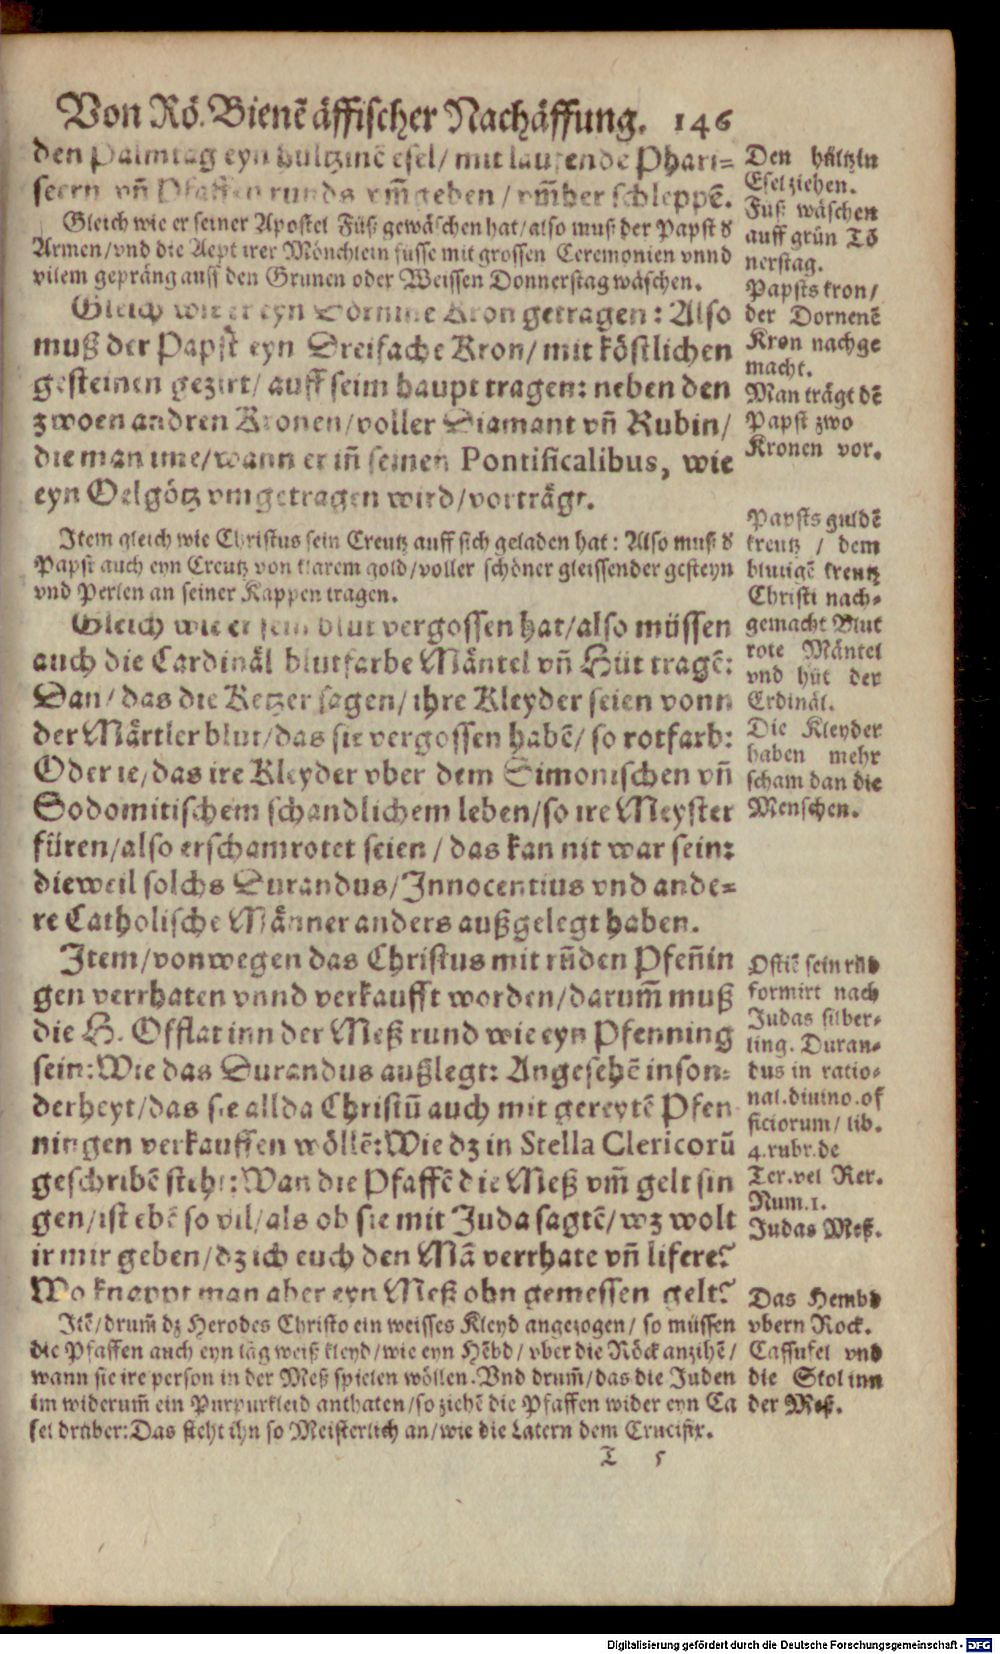 Von Rö. Bienẽ äffischer Nachäffung. 146
den Palmtag eyn hültzinẽ esel/ mit lauffende Phari=
seern vñ Pfaffen runds vm̃geben / vm̃her schleppẽ.
Gleich wie er seiner Apostel Füß gewäschen hat/ also muß der Papst d̃
Armen/vnd die Aept irer Mönchlein füsse mit grossen Ceremonien vnnd
vilem gepräng auff den Grunen oder Weissen Donnerstag wäschen.
Gleich wie er eyn Dörnine Kron getragen: Also
muß der Papst eyn Dreifache Kron/ mit köstlichen
gesteinen gezirt/ auff seim haupt tragen: neben den
zwoen andren Kronen/voller Diamant vñ Rubin/
die man ime/wann er iñ seinen Pontificalibus, wie
eyn Oelgötz vmgetragen wird/vorträgt.
Item gleich wie Christus sein Creutz auff sich geladen hat: Also muß d̃
Papst auch eyn Creutz von klarem gold/voller schöner gleissender gesteyn
vnd Perlen an seiner Kappen tragen.
Gleich wie er sein blut vergossen hat/also müssen
auch die Cardinäl blutfarbe Mäntel vñ Hüt tragẽ:
Dan/ das die Ketzer sagen/ ihre Kleyder seien vonn
der Märtler blut/das sie vergossen habẽ/ so rotfarb:
Oder ie, das ire Kleyder vber dem Simonischen vñ
Sodomitischem schandlichem leben/so ire Meyster
füren/also erschamrotet seien / das kan nit war sein:
dieweil solchs Durandus/Innocentius vnd ande=
re Catholische Männer anders außgelegt haben.
Item/vonwegen das Christus mit rũden Pfeñin
gen verrhaten vnnd verkaufft worden/darum̃ muß
die H. Offlat inn der Meß rund wie eyn Pfenning
sein: Wie das Durandus außlegt: Angesehẽ inson=
derheyt/das sie allda Christũ auch mit gereytẽ Pfen
ningen verkauffen wöllẽ: Wie dz in Stella Clericorũ
geschribẽ steht: Wan die Pfaffẽ die Meß vm̃ gelt sin
gen/ist ebẽ so vil/als ob sie mit Juda sagtẽ/wz wolt
ir mir geben/dz ich euch den Mã verrhate vñ lifere?
Wo knappt man aber eyn Meß ohn gemessen gelt?
Itẽ/drum̃ dz Herodes Christo ein weisses Kleyd angezogen/ so müssen
die Pfaffen auch eyn lãg weiß kleyd/wie eyn Hẽbd/ vber die Röck anzihẽ/
wann sie ire person in der Meß spielen wöllen. Vnd drum̃/das die Juden
im widerum̃ ein Purpurkleid anthaten/so ziehẽ die Pfaffen wider eyn Ca
sel drüber: Das steht ihn so Meisterlich an/wie die Latern dem Crucifix.
T 5
Den hültzin
Esel ziehen.
Füß wäschen
auff grün Tõ
nerstag.
Papsts kron/
der Dornenẽ
Kron nachge
macht.
Man trägt dẽ
Papst zwo
Kronen vor.
Papsts guldẽ
kreutz / dem
blutigẽ kreutz
Christi nach=
gemacht Blut
rote Mäntel
vnd hüt der
Crdinäl.
Die Kleyder
haben mehr
scham dan die
Menschen.
Ostiẽ sein rũd
formirt nach
Judas silber=
ling. Duran=
dus in ratio=
nal. diuino. of
ficiorum/ lib.
4. rubr. de
Ter. vel Rer.
Num. 1.
Judas Meß.
Das Hembd
vbern Rock.
Cassufel vnd
die Stol inn
der Meß.
Digitalisierung gefördert durch die Deutsche Forschungsgemeinschaft - DFG